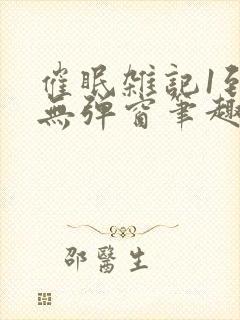 催眠雑記1到
無彈窗筆趣
邵醫生